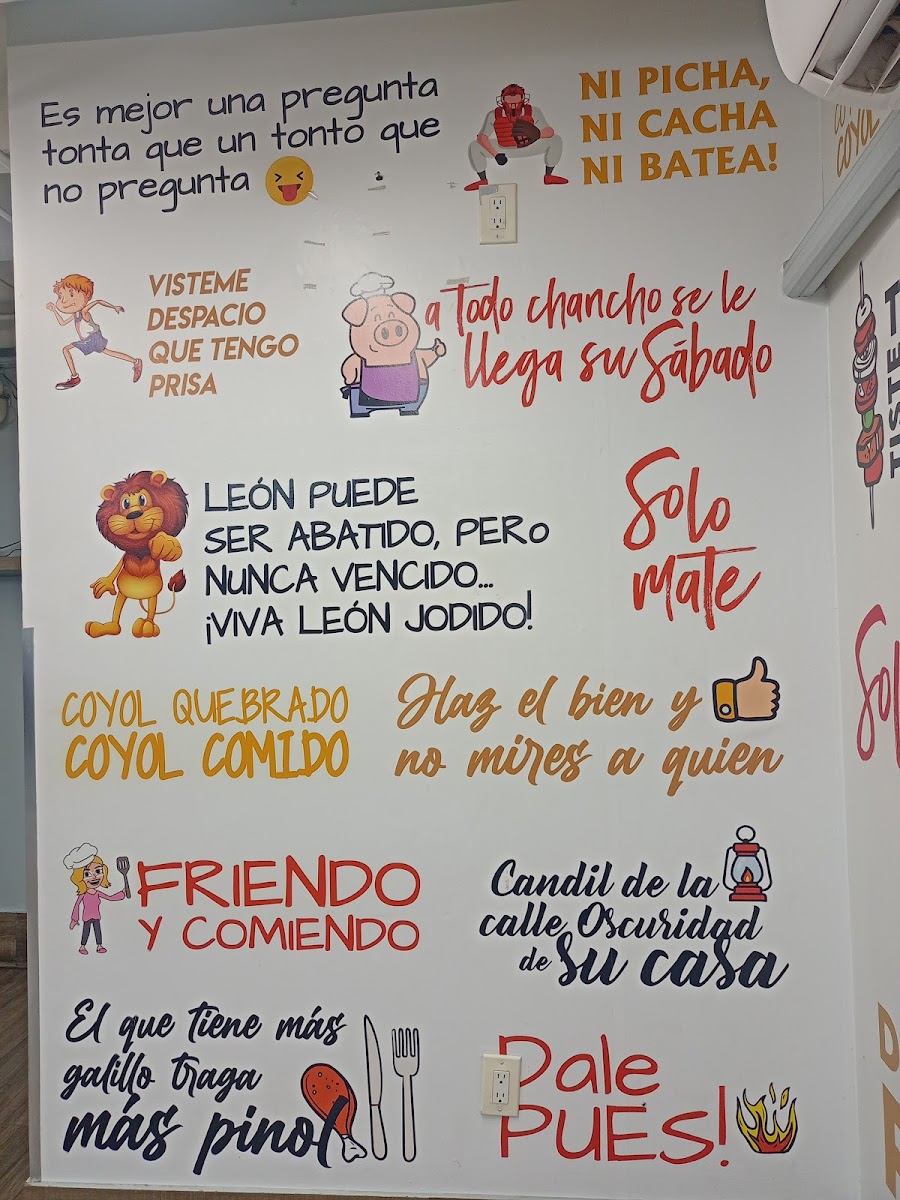 Es mejor una pregunta
tonta que un tonto que
no pregunta
NI PICHA,
NI CACHA
NI BATEA!
VISTEME
DESPACIO
QUE TENGO
PRISA
a Todo chancho se le
llega su Sábado
LEÓN PUEDE
SER ABATIDO, PERO
NUNCA VENCIDO...
¡VIVA LEÓN JODIDO!
Solo
mate
COYOL QUEBRADO
COYOL COMIDO
Haz el bien y
no mires a quien
FRIENDO
Y COMIENDO
Candil de la
calle Oscuridad
de su casa
El que tiene más
galillo traga
más pinol
Dale
PUES!
COYOL
TISTE